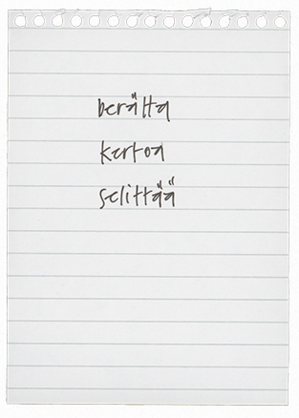 berätta
kertoa
selittää